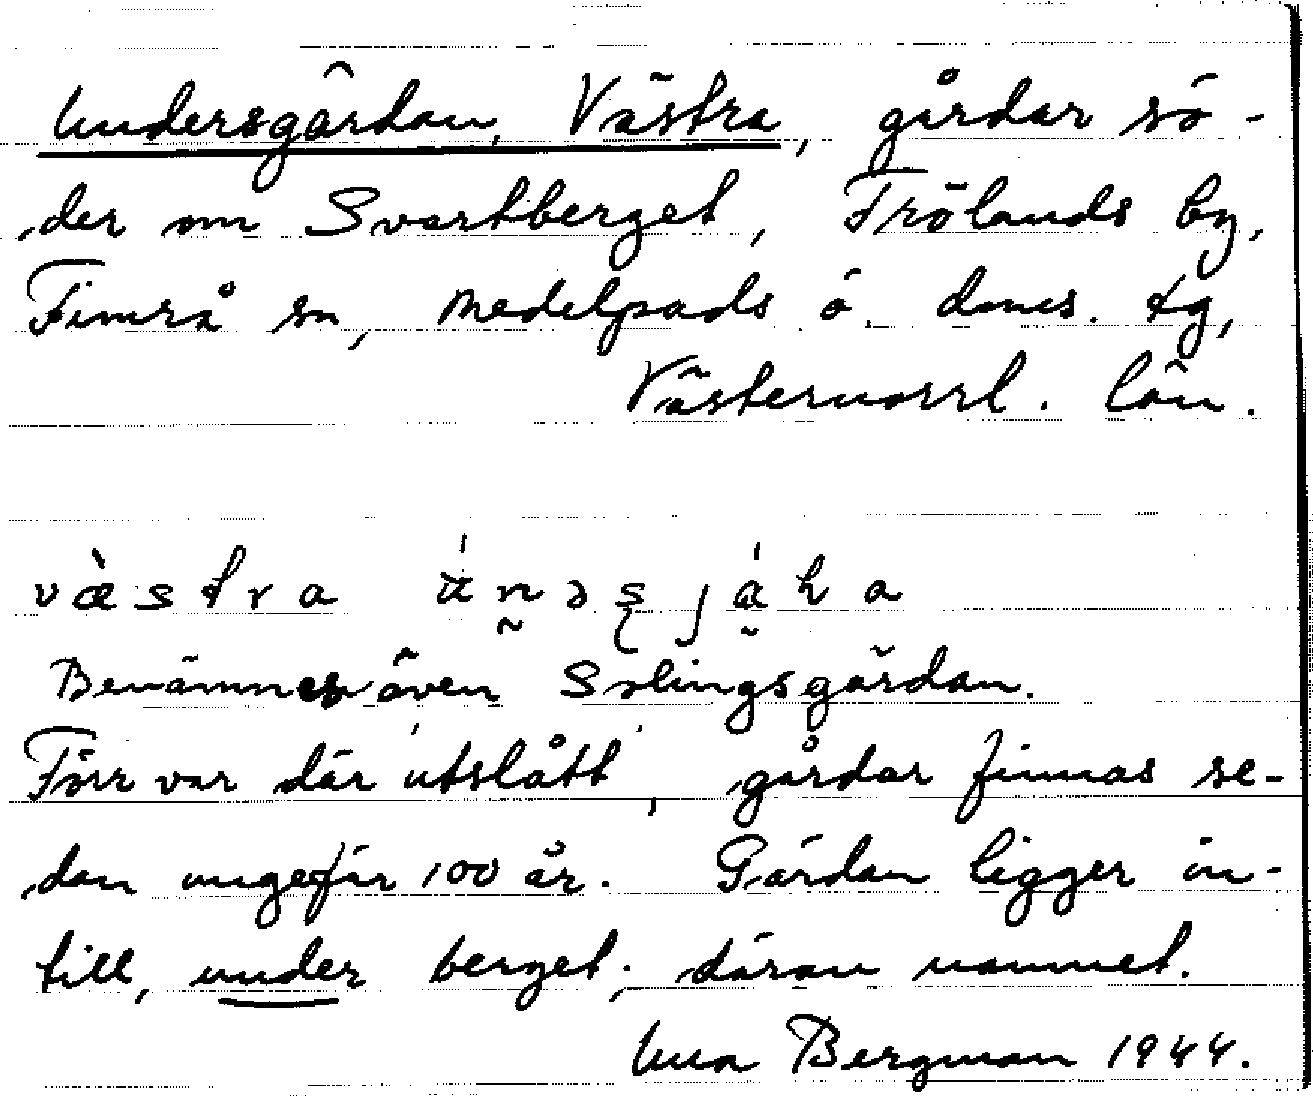 Undersgårdan, Västra, gårdar sö-
der om Svartberget, Frölands by,
Timrå sn, Medelpads ö. doms. tg,
Västernorrl. län.
västra
Benämnes även Solingsgårdan.
Förr var där 'utslått', gårdar finnas se-
dan ungefär 100 år. Gårdan ligger in-
till, under berget; därav namnet.
Una Bergman 1944.